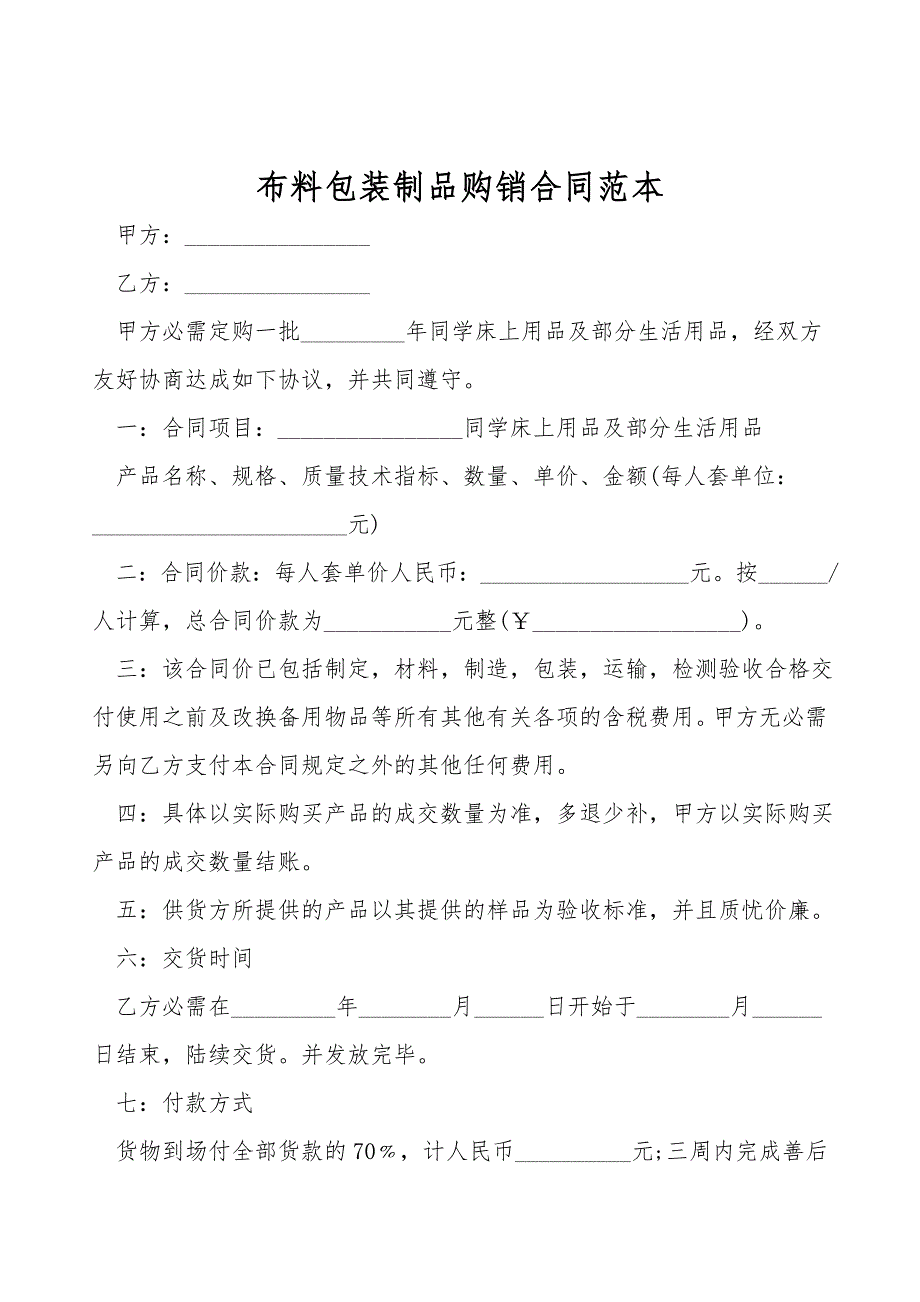 布料包装制品购销合同范本
甲方：________________
乙方：________________
甲方必需定购一批_________年同学床上用品及部分生活用品，经双方
友好协商达成如下协议，并共同遵守。
一：合同项目：________________同学床上用品及部分生活用品
产品名称、规格、质量技术指标、数量、单价、金额(每人套单位：
______________________元)
二：合同价款：每人套单价人民币：__________________元。按______/
人计算，总合同价款为___________元整(￥__________________)。
三：该合同价已包括制定，材料，制造，包装，运输，检测验收合格交
付使用之前及改换备用物品等所有其他有关各项的含税费用。甲方无必需
另向乙方支付本合同规定之外的其他任何费用。
四：具体以实际购买产品的成交数量为准，多退少补，甲方以实际购买
产品的成交数量结账。
五：供货方所提供的产品以其提供的样品为验收标准，并且质忧价廉。
六：交货时间
乙方必需在_________年________月______日开始于________月______
日结束，陆续交货。并发放完毕。
七：付款方式
货物到场付全部货款的 70﹪，计人民币__________元;三周内完成善后